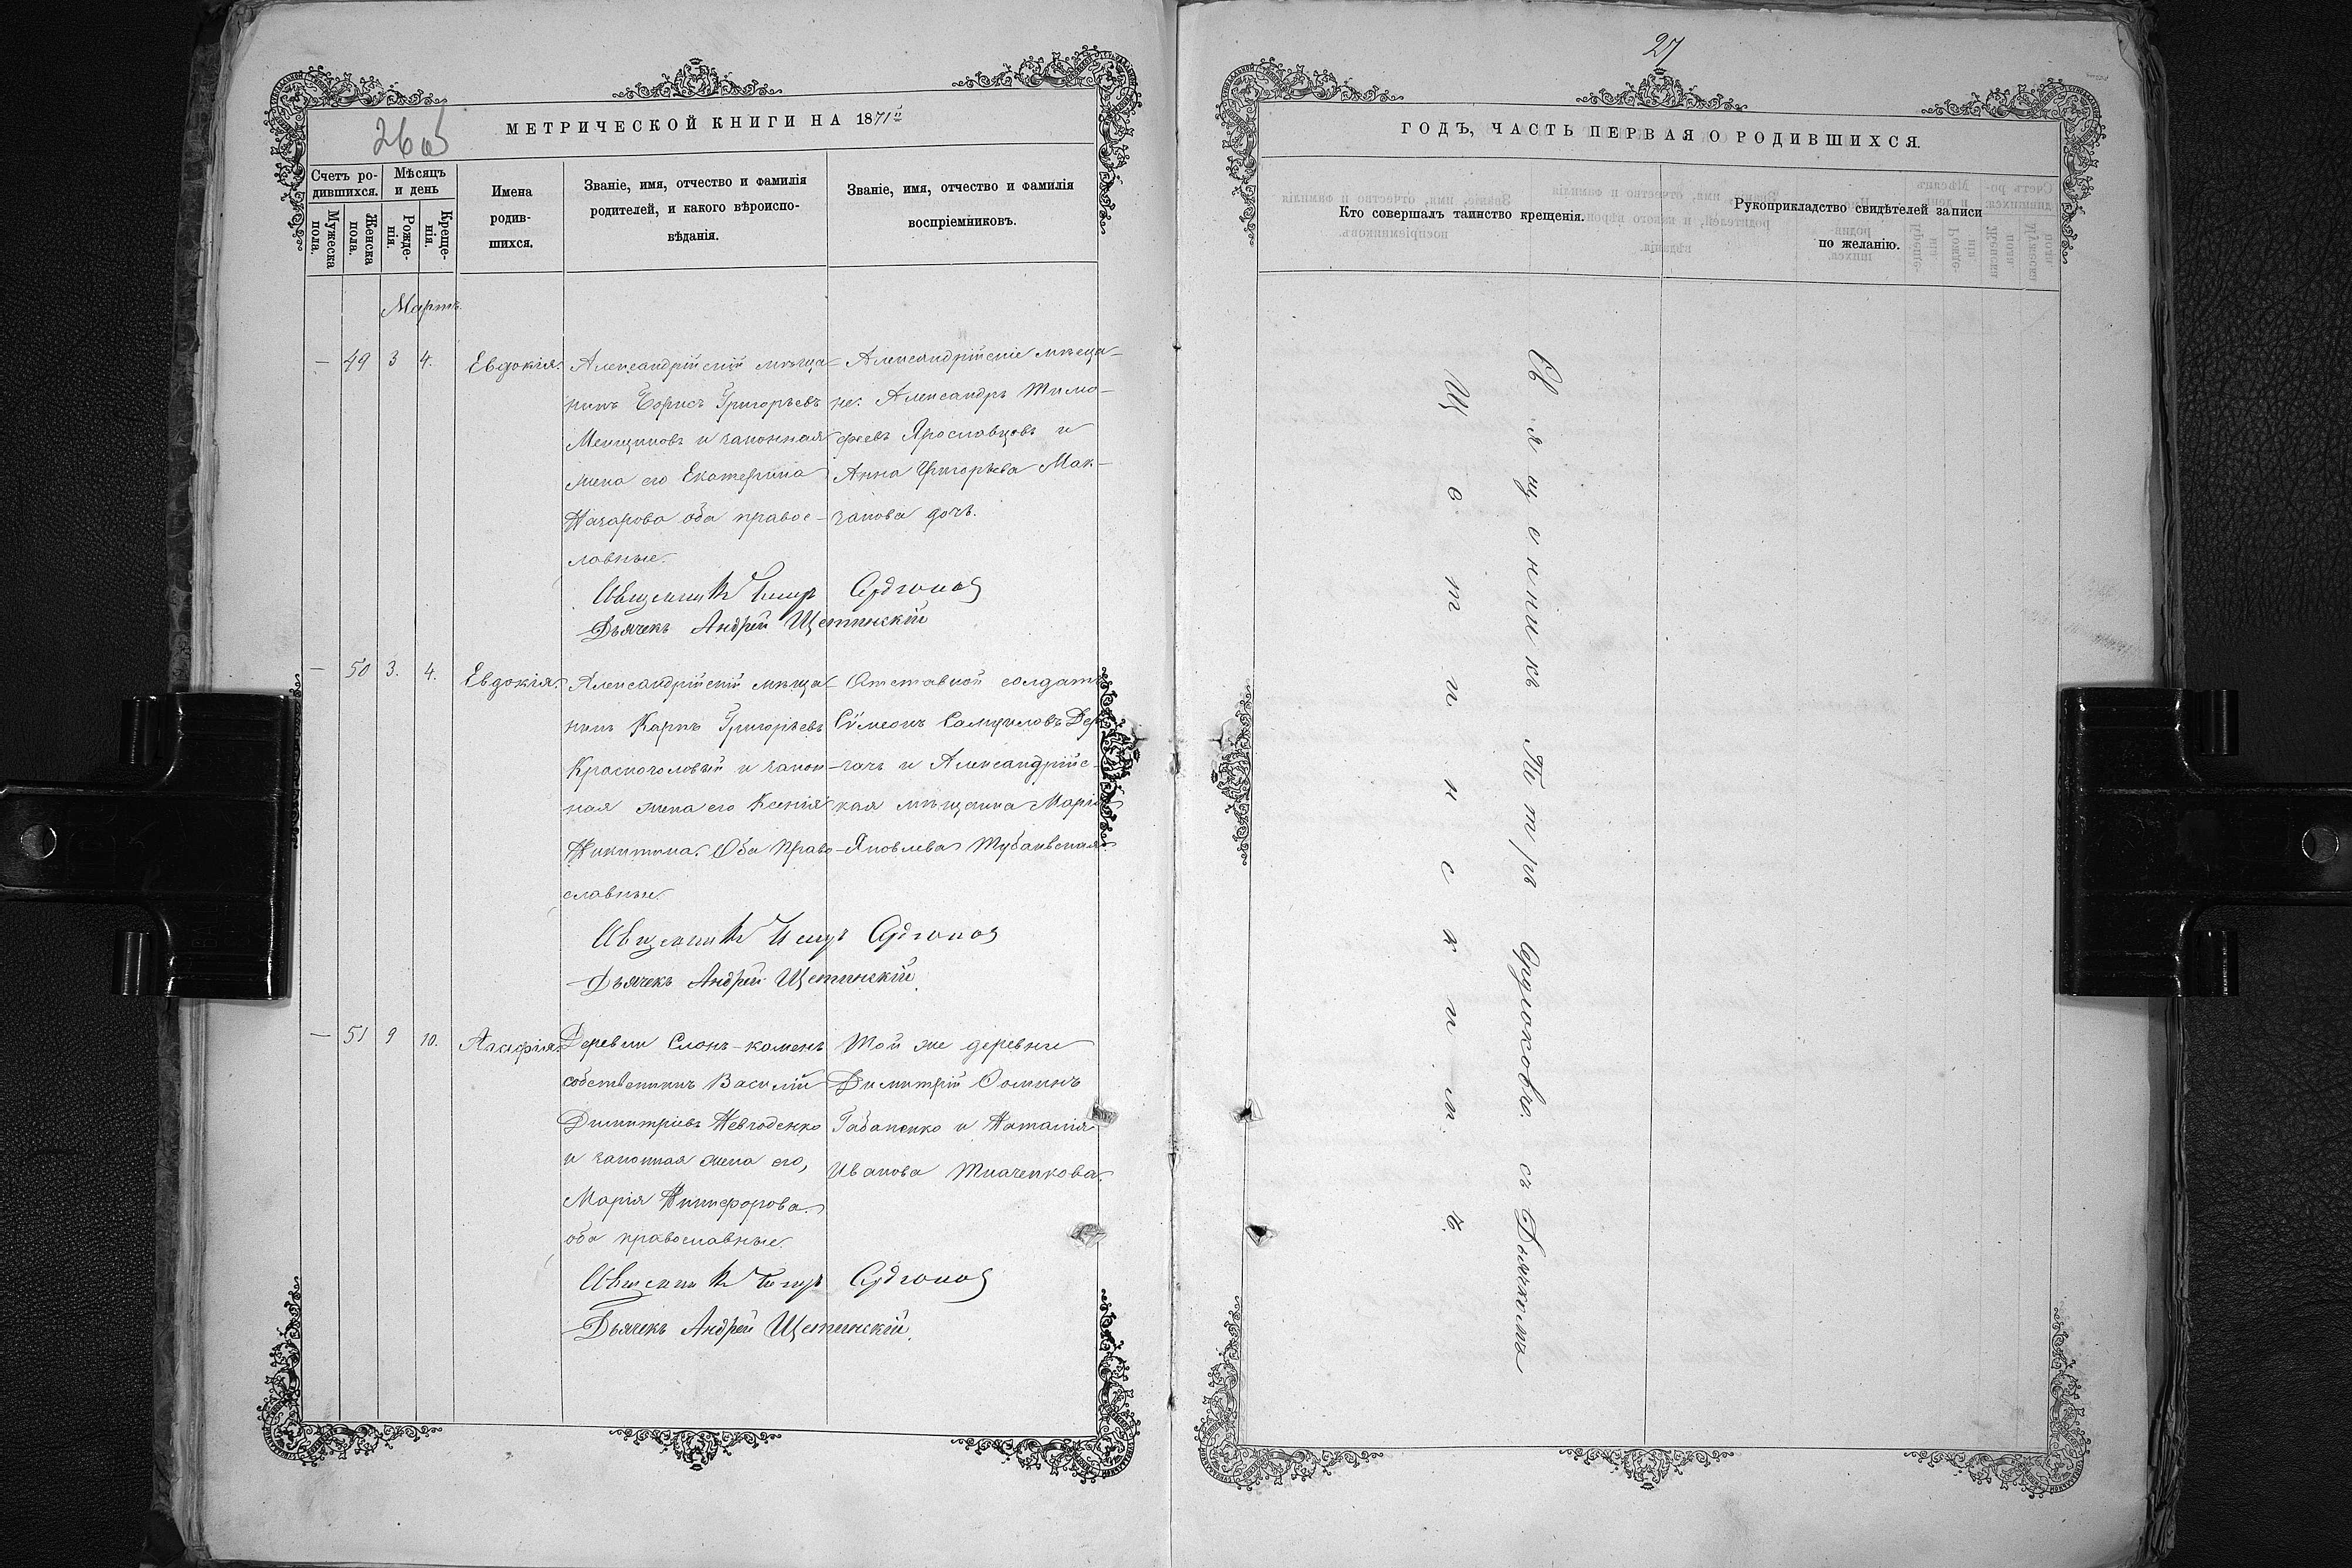 26 об
МЕТРИЧЕСКОЙ КНИГИ НА 1871й
Счетъ ро-
дившихся.
Мѣсяцъ
и день
Мужеска
пола.
Женска
пола.
Рожде-
нія.
Креще-
нія.
Имена
родив-
шихся.
Званіе, имя, отчество и фамилія
родителей, и какого вѣроиспо-
вѣданія.
Званіе, имя, отчество и фамилія
воспріемниковъ.
Мартъ.
— 49 3 4. Евдокія.
Александрійскій мѣща-
нинъ Борисъ Григорьевъ
Менщиковъ и законная
жена его Екатерина
Назарова оба правос-
лавные.
Александрійскіе мѣща-
не: Александръ Тимо-
феевъ Ярославцовъ и
Анна Григорьева Мак-
закова дочь.
Священникъ Петръ
Дьячекъ Андрей Щетинскій
— 50 3. 4. Евдокія.
Александрійскій мѣща-
нинъ Карпъ Григорьевъ
Красноголовый и закон-
ная жена его Ксенія
Никитина. Оба Право-
славные.
Отставной солдатъ
Сѵмеонъ Самуиловъ Дер
качъ и Александрійс-
кая мѣщанка Марія
Яковлева
Священникъ Петръ
Дьячекъ Андрей Щетинскій.
— 51 9 10. Агафія.
Деревни Слонъ-камень
собственникъ Василій
Димитріевъ Невгоденко
и законная жена его,
Марія Никифорова.
оба православные.
Той же деревни
Димитрій Ѳоминъ
Габаненко и Наталія
Иванова Ткаченкова.
Священникъ Петръ
Дьячекъ Андрей Щетинскій.
27
ГОДЪ, ЧАСТЬ ПЕРВАЯ О РОДИВШИХСЯ.
Кто совершалъ таинство крещенія.
Рукоприкладство свидѣтелей записи
по желанію.
Священникъ Петръ съ Дьячкомъ
Щетинскимъ.